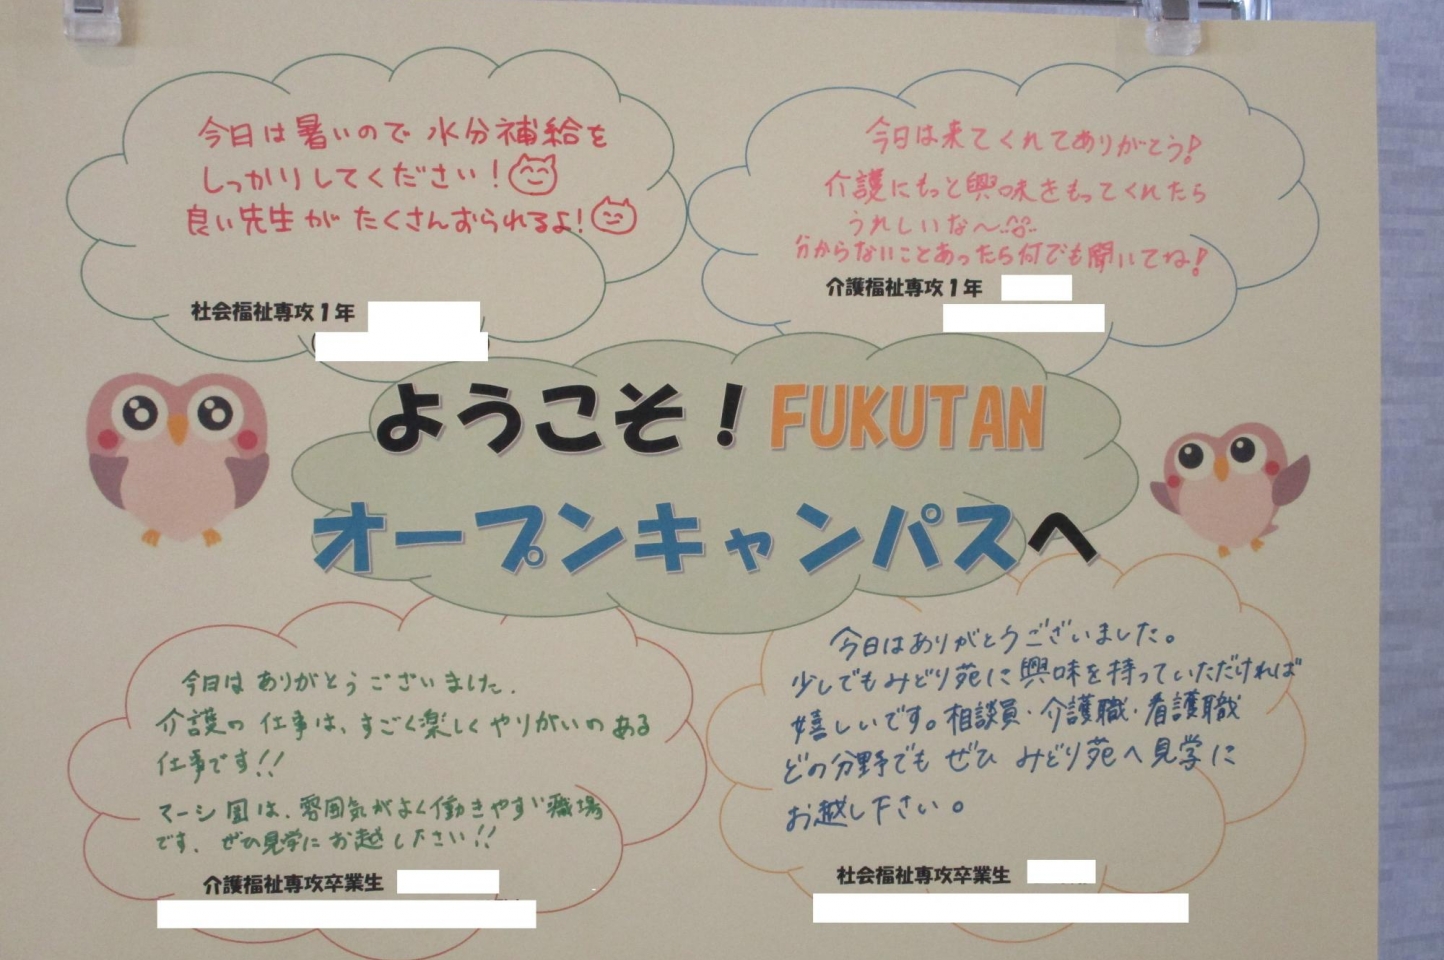 今日は暑いので 水分補給を
しっかりしてください！
良い先生が たくさんおられるよ！
社会福祉専攻１年
今日は来てくれてありがとう！
介護にもっと興味をもってくれたら
うれしいな〜
分からないことあったら何でも聞いてね！
介護福祉専攻１年
ようこそ！FUKUTAN
オープンキャンパスへ
今日は ありがとうございました.
介護の 仕事は、すごく楽しく やりがいのある
仕事です!!
マーシ園は、雰囲気がよく働きやすい職場
です. ぜひ見学に お越し下さい!!
介護福祉専攻卒業生
今日はありがとうございました。
少しでもみどり苑に興味を持っていただければ
嬉しいです。相談員・介護職・看護職
どの分野でも ぜひ みどり苑へ見学に
お越し下さい。
社会福祉専攻卒業生